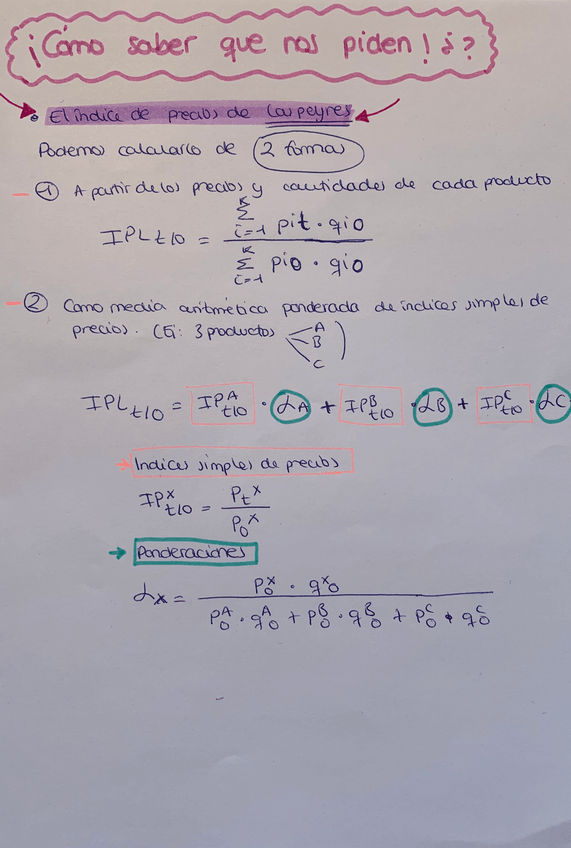 ¡Cómo saber que nos piden! ¿?
• El índice de precios de Laspeyres
Podemos calcularlo de 2 formas
① A partir de los precios y cantidades de cada producto
IPL t/0 = Σ^K_{i=1} pit · qi0 / Σ^K_{i=1} pi0 · qi0
② Como media aritmética ponderada de índices simples de
precios. (Ej: 3 productos A B C)
IPL t/0 = IP^A_{t/0} · αA + IP^B_{t/0} · αB + IP^C_{t/0} · αC
→ Indices simples de precios
IP^x_{t/0} = P_t^x / P_0^x
→ Ponderaciones
αx = P_0^x · q_0^x / P_0^A · q_0^A + P_0^B · q_0^B + P_0^C · q_0^C